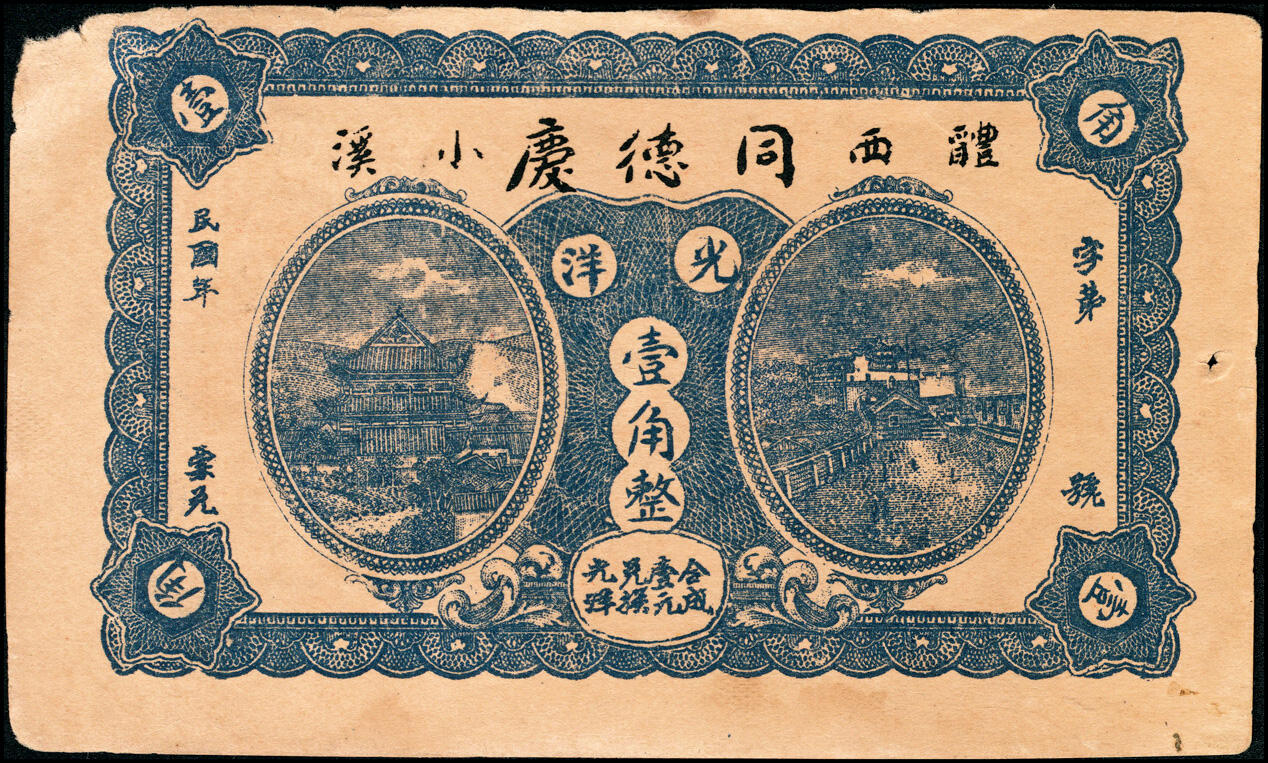 醴西同德慶小溪
光洋
壹角整
合成
壹元
兌換
光洋
字第
號
民國年
壹
角
角